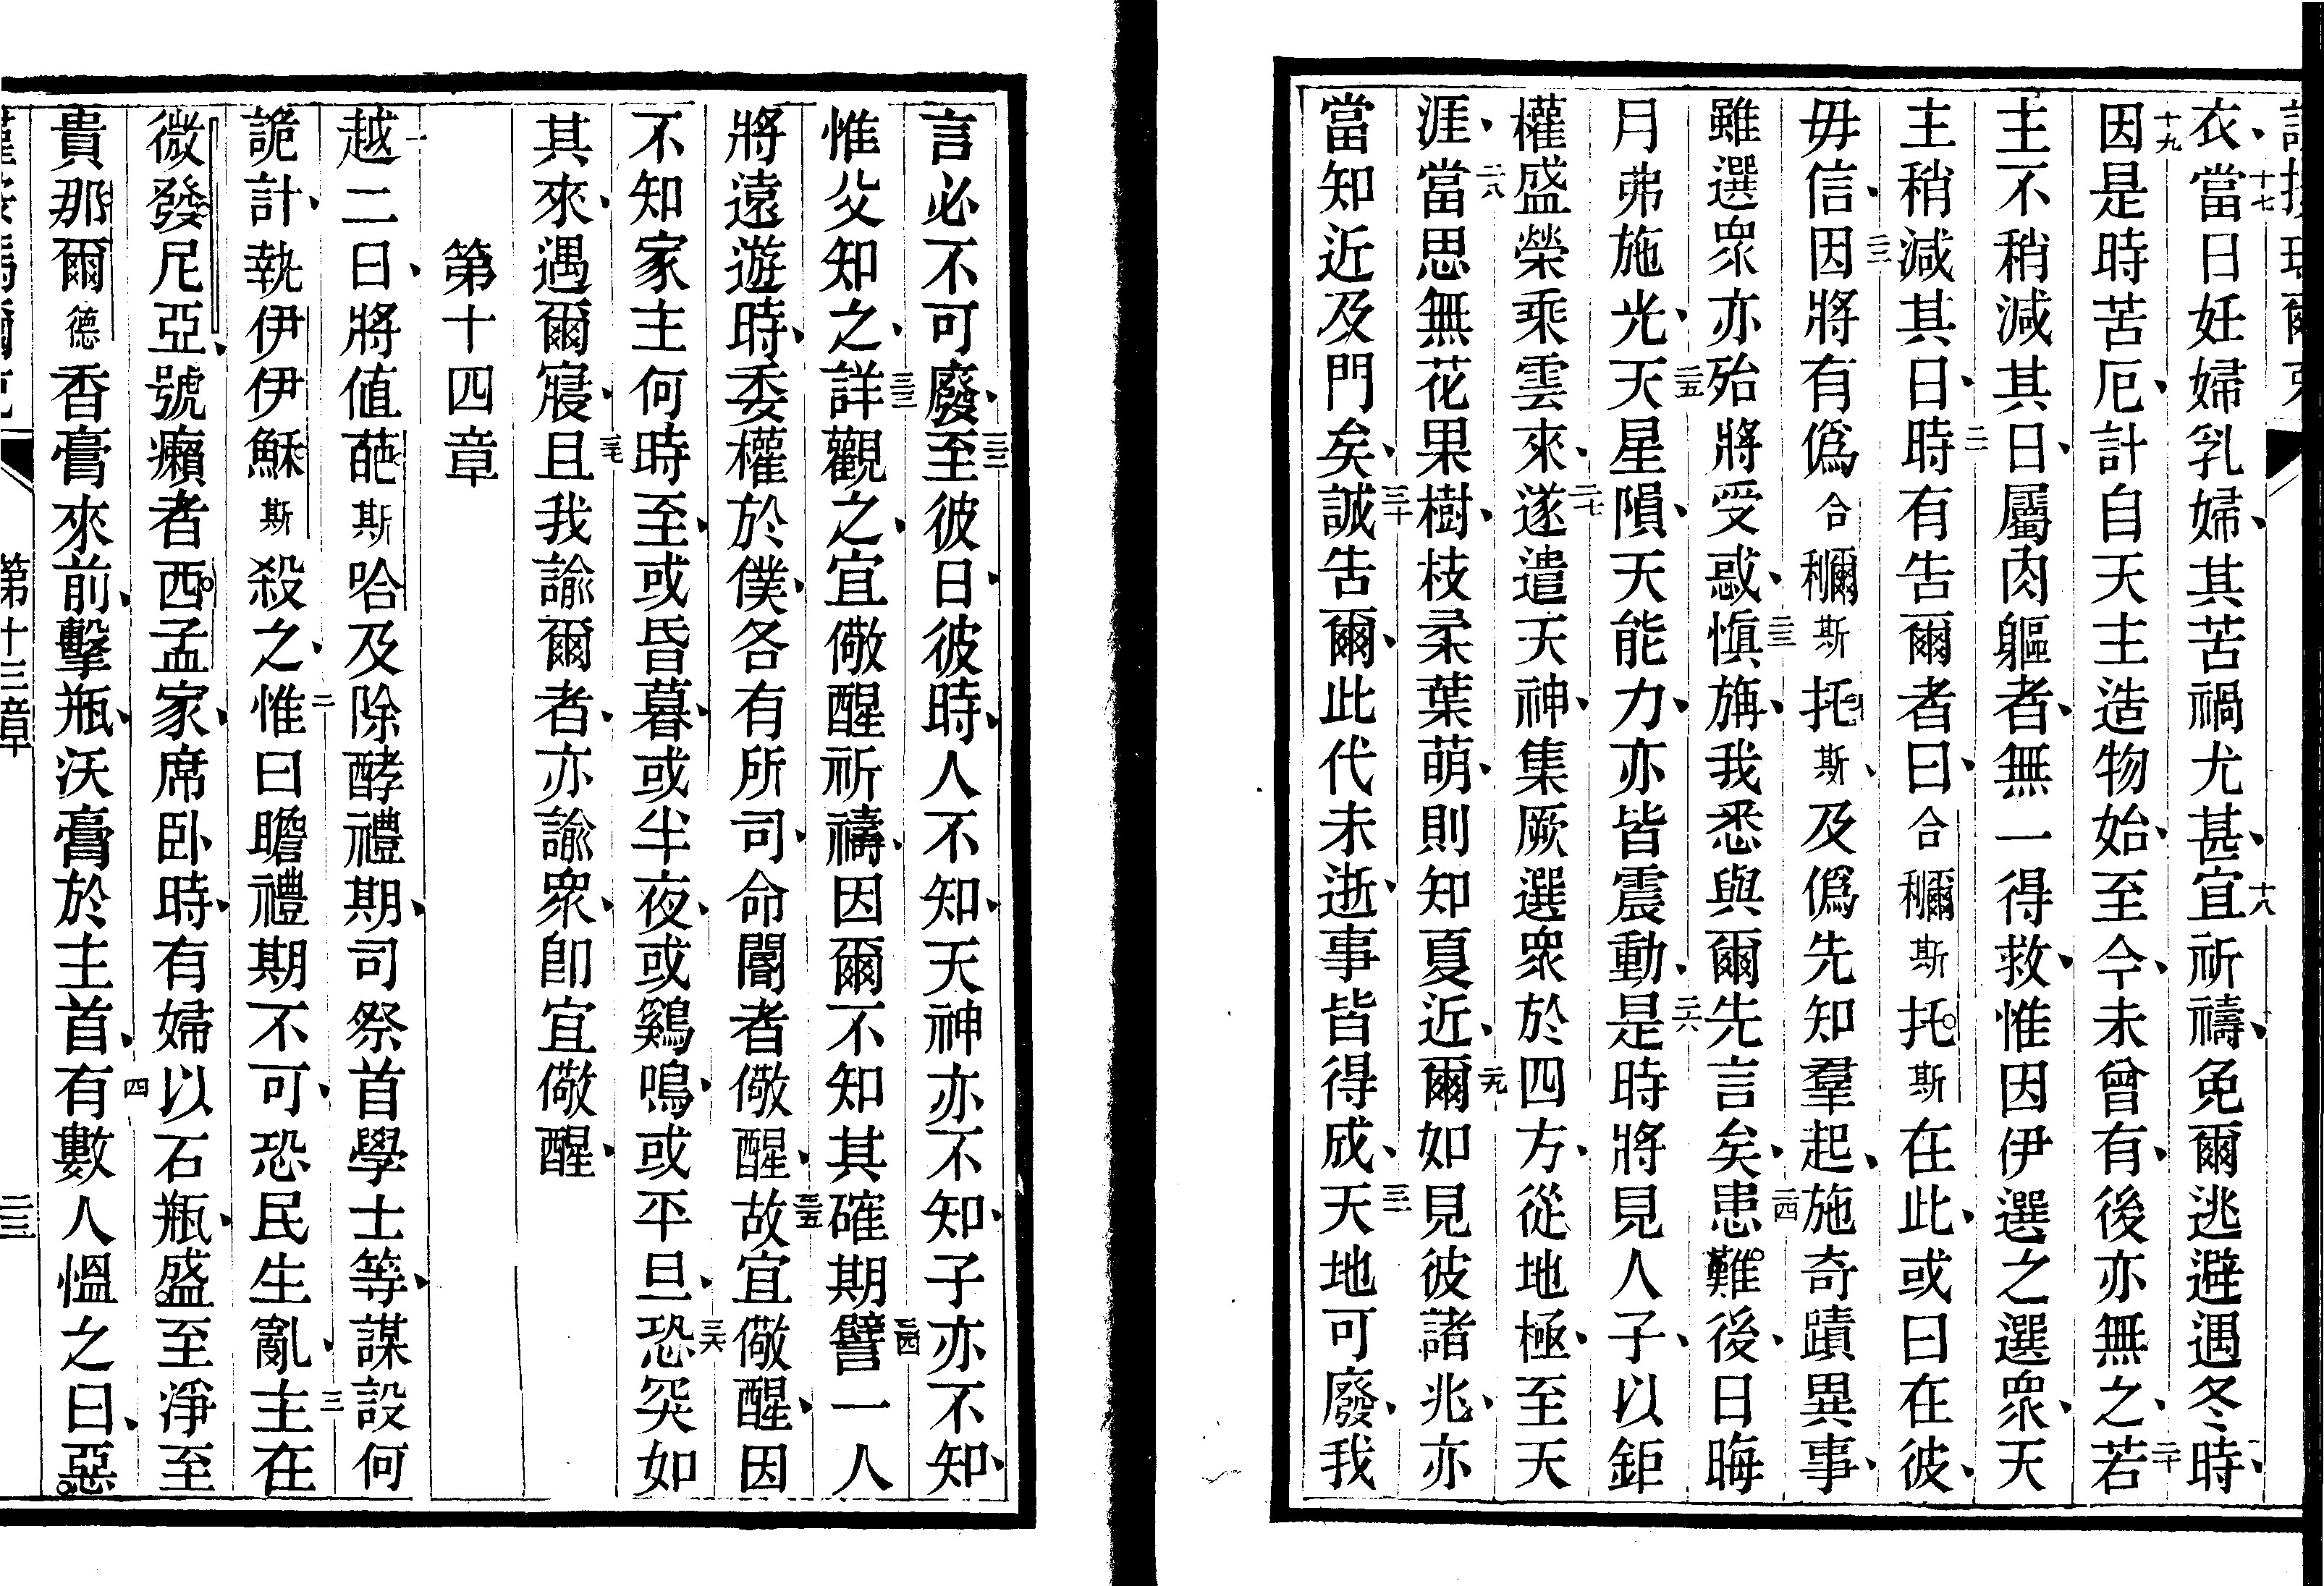 衣、十七當日妊婦乳婦、其苦禍尤甚、十八宜祈禱、免爾逃避遇冬時、
十九因是時苦厄、計自天主造物始、至今、未曾有、後亦無之、二十若
主不稍減其日、屬肉軀者、無一得救、惟因伊選之選衆、天
主稍減其日、二一時有告爾者曰、合穪斯托斯在此、或曰在彼、
毋信、二二因將有僞合穪斯托斯、及僞先知羣起、施奇蹟異事、
雖選衆亦殆將受惑、二三愼旃、我悉與爾先言矣、二四患難後、日晦
月弗施光、二五天星隕、天能力、亦皆震動、二六是時將見人子、以鉅
權盛榮乘雲來、二七遂遣天神、集厥選衆於四方、從地極、至天
涯、二八當思無花果樹、枝柔葉萌、則知夏近、二九爾如見彼諸兆、亦
當知近及門矣、三十誠告爾、此代未逝、事皆得成、三一天地可廢、我
言必不可廢、三二至彼日、彼時、人不知、天神亦不知、子亦不知、
惟父知之、三三詳觀之、宜儆醒祈禱、因爾不知其確期、三四譬一人
將遠遊時、委權於僕、各有所司、命閽者儆醒、三五故宜儆醒、因
不知家主何時至、或昏暮、或半夜、或鷄鳴、或平旦、三六恐突如
其來、遇爾寢、三七且我諭爾者、亦諭衆、卽宜儆醒、
第十四章
一越二日、將值葩斯哈及除酵禮期、司祭首學士等、謀設何
詭計、執伊伊穌斯殺之、二惟曰瞻禮期不可、恐民生亂、三主在
微發尼亞、號癩者西孟家、席卧時、有婦以石瓶、盛至淨至
貴那爾德香膏來前、擊瓶、沃膏於主首、四有數人慍之曰、惡
第十三章
二三